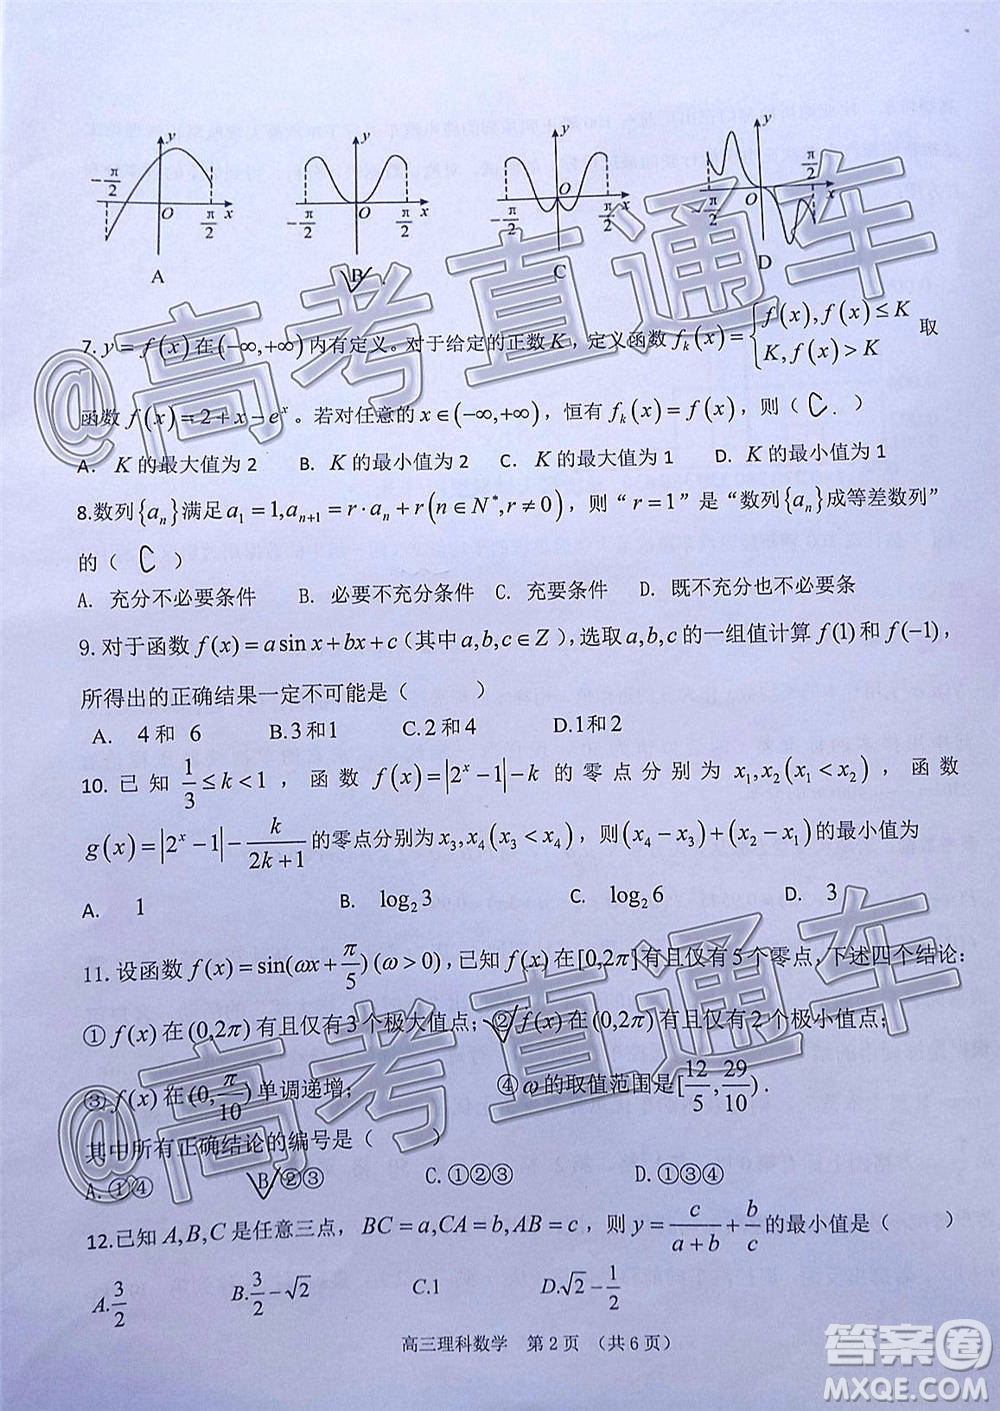 y y y y
-π/2 O π/2 x -π/2 O π/2 x -π/2 O π/2 x -π/2 O π/2 x
A B C D
7. y=f(x)在(-∞,+∞)内有定义。对于给定的正数K，定义函数f_k(x)={f(x),f(x)≤K K,f(x)>K 取
函数f(x)=2+x-e^x。若对任意的x∈(-∞,+∞)，恒有f_k(x)=f(x)，则（ C . ）
A. K的最大值为2 B. K的最小值为2 C. K的最大值为1 D. K的最小值为1
8.数列{a_n}满足a_1=1,a_{n+1}=r·a_n+r(n∈N^*,r≠0)，则“r=1”是“数列{a_n}成等差数列”
的（ C ）
A. 充分不必要条件 B. 必要不充分条件 C. 充要条件 D. 既不充分也不必要条
9.对于函数f(x)=asinx+bx+c(其中a,b,c∈Z),选取a,b,c的一组值计算f(1)和f(-1)，
所得出的正确结果一定不可能是（ ）
A. 4和 6 B.3和1 C.2和4 D.1和2
10.已知1/3≤k<1，函数f(x)=|2^x-1|-k的零点分别为x_1,x_2(x_1<x_2)，函数
g(x)=|2^x-1|-k/(2k+1)的零点分别为x_3,x_4(x_3<x_4)，则(x_4-x_3)+(x_2-x_1)的最小值为
A. 1 B. log_2 3 C. log_2 6 D. 3
11.设函数f(x)=sin(ωx+π/5)(ω>0),已知f(x)在[0,2π]有且仅有5个零点,下述四个结论:
①f(x)在(0,2π)有且仅有3个极大值点; ②f(x)在(0,2π)有且仅有2个极小值点;
③f(x)在(0,π/10)单调递增; ④ω的取值范围是[12/5,29/10).
其中所有正确结论的编号是（ ）
A.①④ B.②③ C.①②③ D.①③④
12.已知A,B,C是任意三点，BC=a,CA=b,AB=c，则y=c/(a+b)+b/c的最小值是（ ）
A.3/2 B.3/2-√2 C.1 D.√2-1/2
高三理科数学 第2页 （共6页）
@高考直通车
@高考直通车
答案圈
MXQE.COM